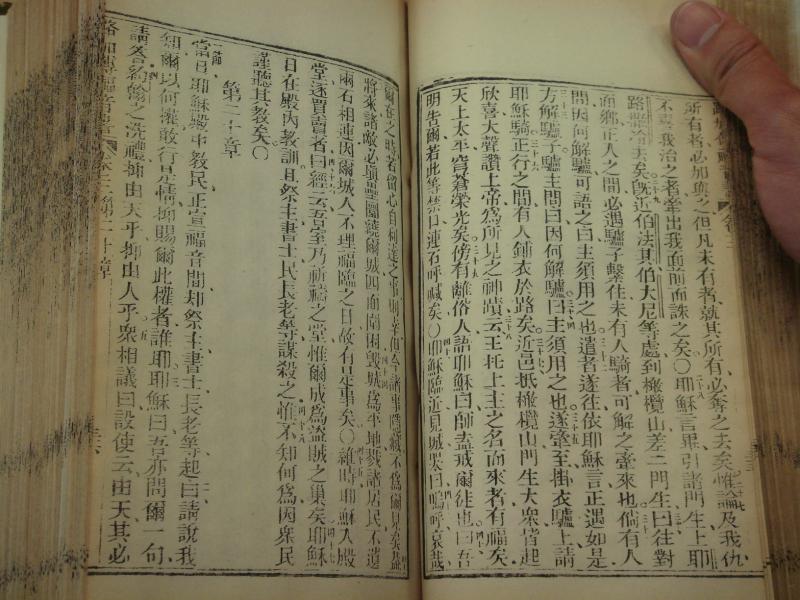 所有者必加與之但凡未有者就其所有必奪之去矣惟論及我仇
不喜我治之者牽出我面前而誅之矣○耶穌言畢引諸門生上耶
路撒冷去矣既近伯法其伯大尼等處到橄欖山差二門生曰往對
面鄉正入之間必遇驢子繫住未有人騎者可解之牽來也倘有人
問因何解驢可語之曰主須用之也遣者遂往依耶穌言正遇如是
方解驢子驢主問曰因何解驢曰主須用之也遂牽至掛衣驢上請
耶穌騎正行之間有人鋪衣於路矣近邑抵橄欖山門生大衆皆起
欣喜大聲讚上帝為所見之神蹟云王托上主之名而來者有福矣
天上太平穹蒼榮光矣傍有離俗人語耶穌曰師盍戒爾徒也曰吾
明告爾若此等禁口連石呼喊矣○耶穌臨近見城哭曰嗚呼哀哉
將來諸敵必填壘圍繞爾城四面闈困毀城為平地戮諸居民不遺
爾石相連因爾城人不理福臨之日故有是事矣○維時耶穌入殿
堂逐買賣者曰經云吾室乃祈禱之堂惟爾成為盜賊之巢矣耶穌
日在殿內教訓且祭主書士民長老等謀殺之惟不知何為因衆民
謹聽其教矣○
第二十章
當日耶穌殿中教民正宣福音間却祭主書士長老等起曰請說我
知爾以何權敢行是情抑賜爾此權者誰耶耶穌曰吾亦問爾一句
請答約翰之洗禮抑由天乎抑由人乎衆相議曰設使云由天其必
路加傳福音書 卷三 第二十章